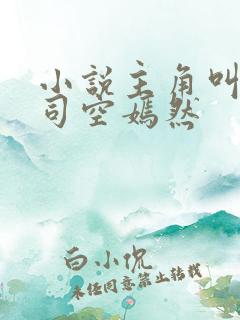 小说主角叫
司空嫣然
白小侃
未经同意禁止转载